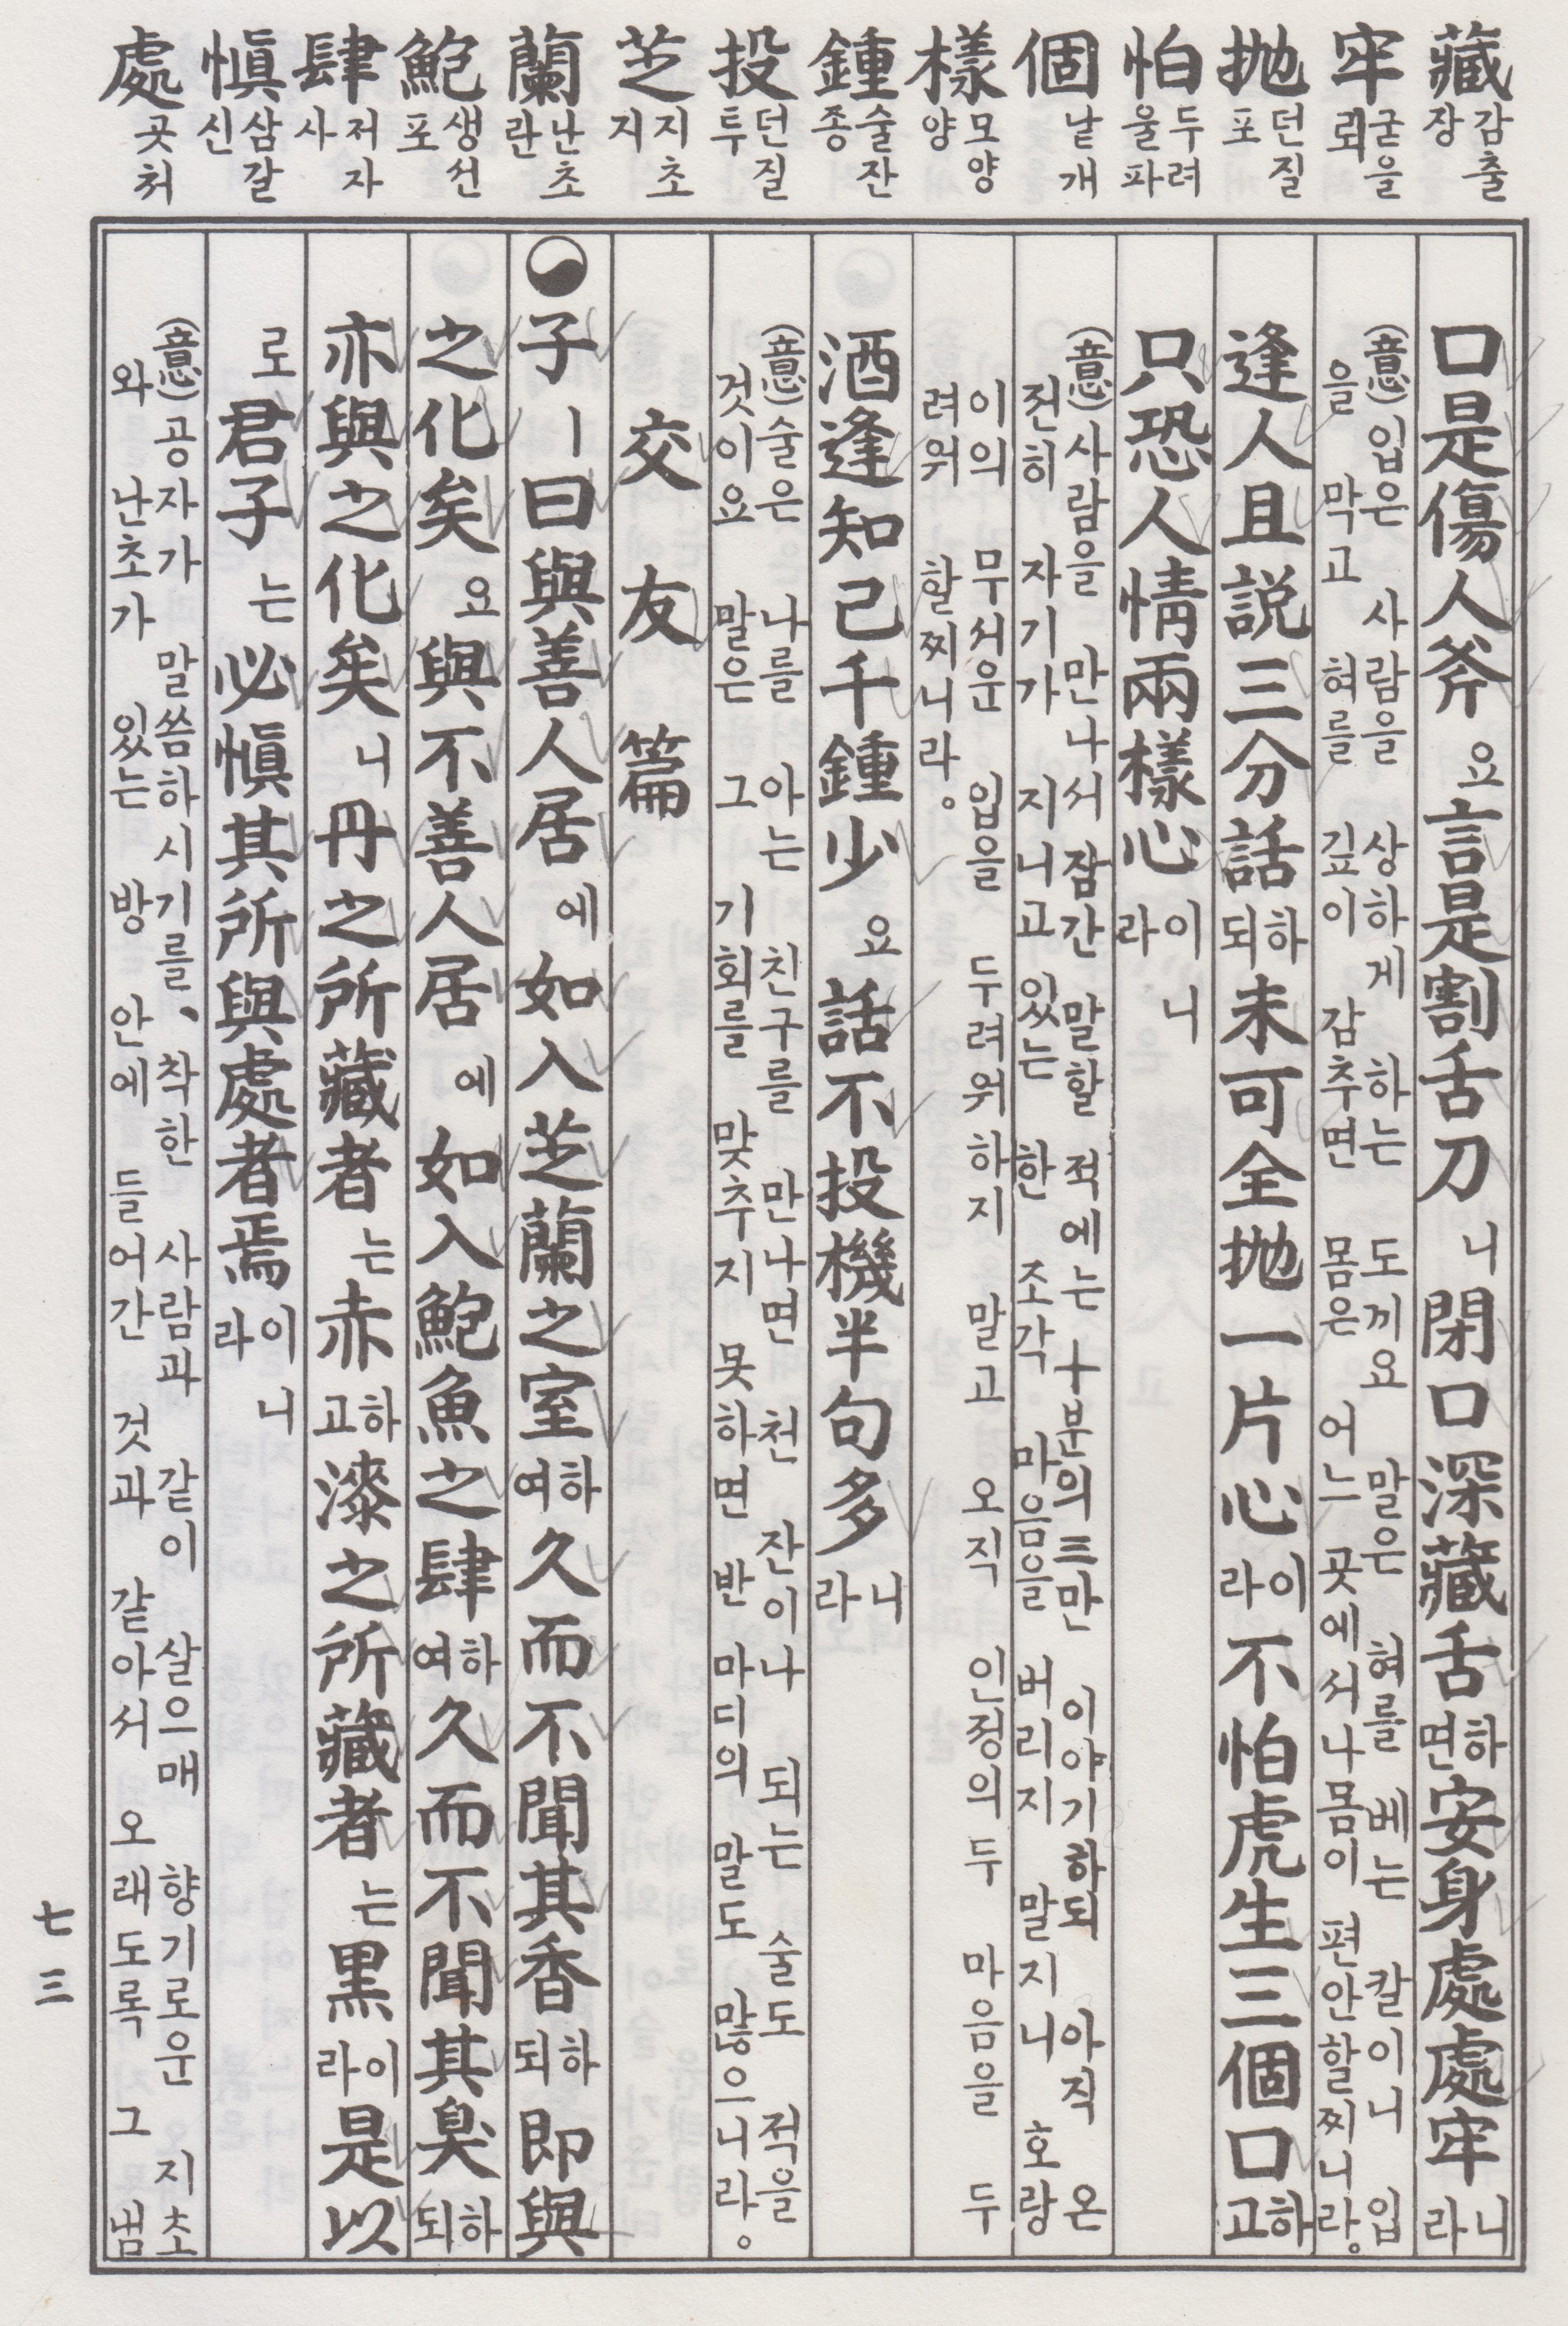 藏 감출 장
牢 굳을 뢰
抛 던질 포
怕 두려울 파
個 낱 개
樣 모양 양
鍾 술잔 종
投 던질 투
芝 지초 지
蘭 난초 란
鮑 생선 포
肆 저자 사
愼 삼갈 신
處 곳 처
口是傷人斧요言是割舌刀니閉口深藏舌하면安身處處牢니라
(意)입은 사람을 상하게 하는 도끼요 말은 혀를 베는 칼이니 입
을 막고 혀를 깊이 감추면 몸은 어느 곳에서나 몸이 편안할찌니라。
逢人且説三分話하되未可全抛一片心이라不怕虎生三個口하고
只恐人情兩樣心이니라
(意)사람을 만나서 잠간 말할 적에는 十분의 三만 이야기하되 아직 온
전히 자기가 지니고 있는 한 조각 마음을 버리지 말지니 호랑
이의 무서운 입을 두려워하지 말고 오직 인정의 두 마음을 두
려워 할찌니라。
酒逢知己千鍾少요話不投機半句多니라
(意)술은 나를 아는 친구를 만나면 천 잔이나 되는 술도 적을
것이요 말은 그 기회를 맞추지 못하면 반 마디의 말도 많으니라。
交友篇
子ㅣ曰與善人居에如入芝蘭之室하여久而不聞其香하되即與
之化矣요與不善人居에如入鮑魚之肆하여久而不聞其臭하되
亦與之化矣니丹之所藏者는赤하고漆之所藏者는黑이라是以
로君子는必愼其所與處者焉이니라
(意)공자가 말씀하시기를、착한 사람과 같이 살으매 향기로운 지초
와 난초가 있는 방 안에 들어간 것과 같아서 오래도록 그 냄
七三